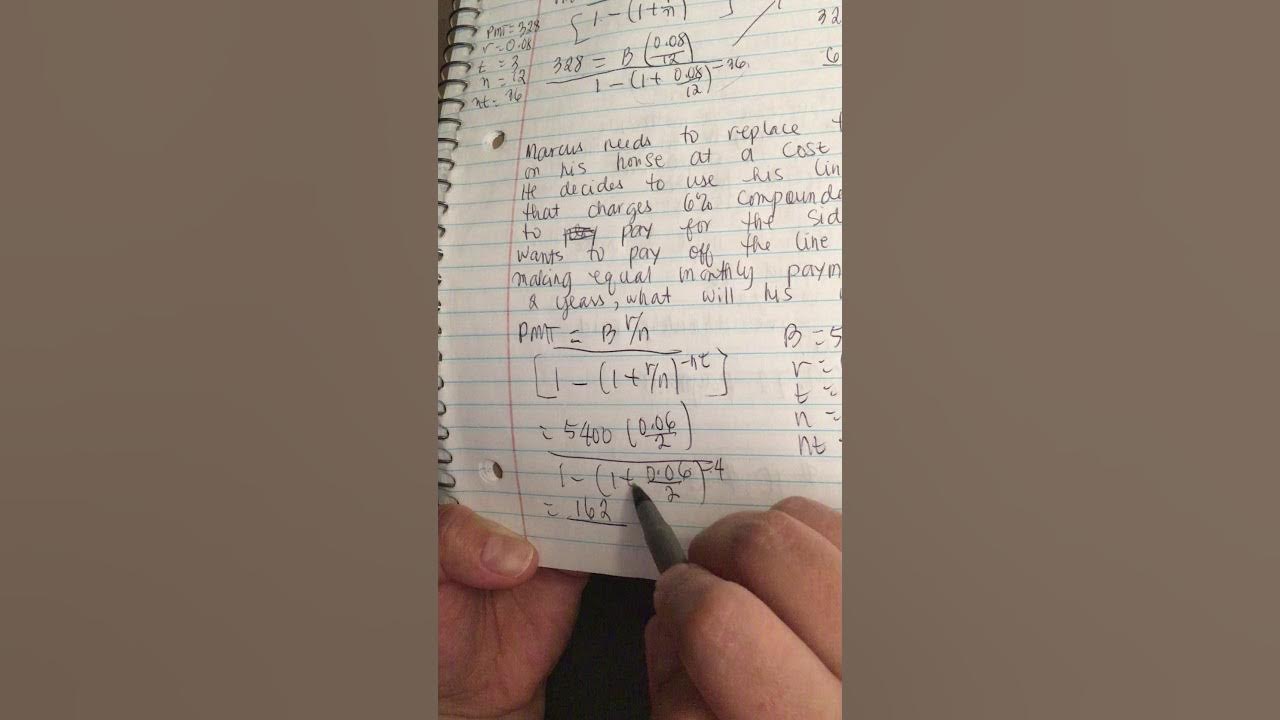 [1 - (1 + n)]
PMT = 328
r = 0.08
t = 3
n = 12
nt = 36
328 = B (0.08/12)
1 - (1 + 0.08/12)^-36
32
6
Marcus needs to replace t
on his house at a cost
He decides to use his lin
that charges 6% compounde
to pay for the sid
wants to pay off the line
making equal monthly paym
2 years, what will his
PMT = B r/n
[1 - (1 + r/n)^-nt]
B = 5
r =
t =
n =
nt
= 5400 (0.06/2)
1 - (1 + 0.06/2)^-4
= 162